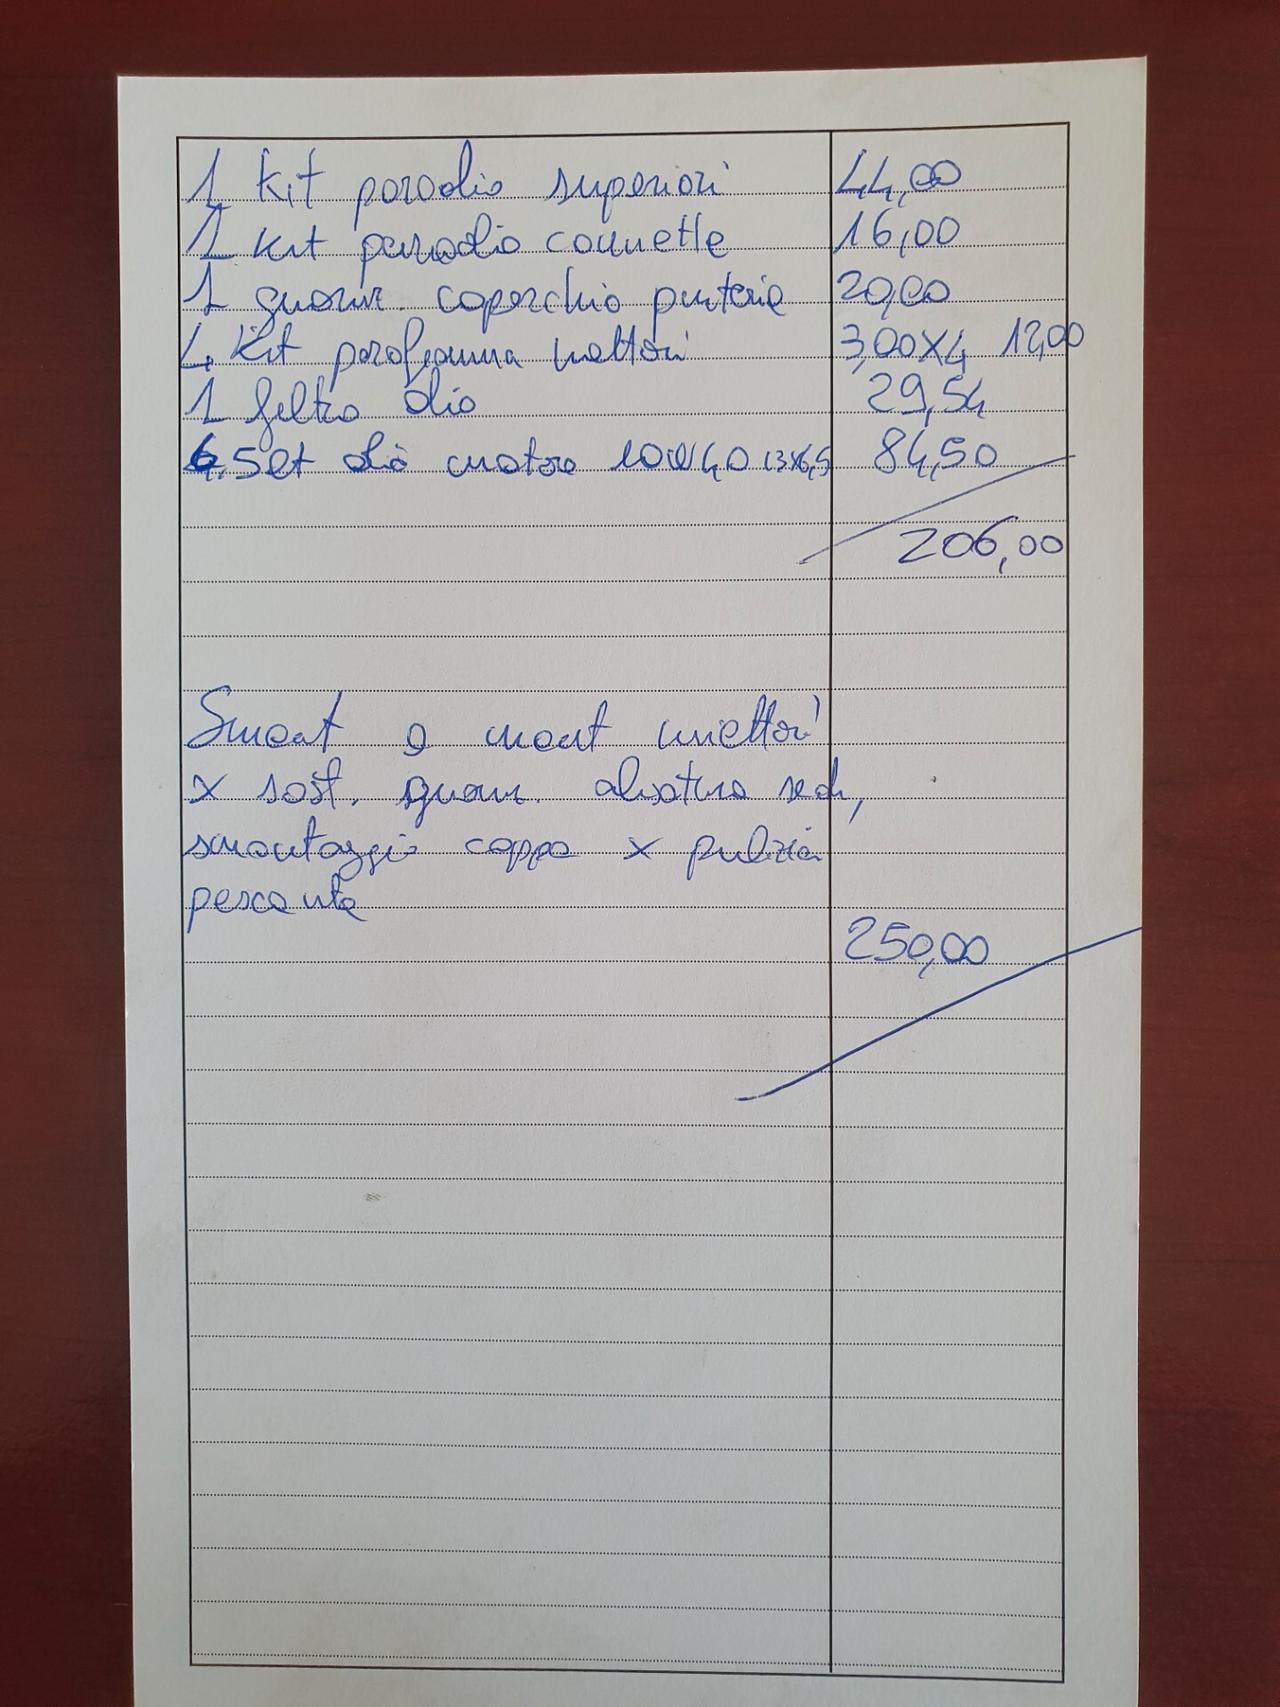 1 Kit paraolio superiori 44,00
1 Kit paraolio cannette 16,00
1 guarniz. coperchio punterie 20,00
4 Kit parafiamma iniettori 3,00x4 12,00
1 filtro olio 29,54
6,5 lt olio motore 10W40 13x6,5 84,50
206,00
Smont e mont iniettori
x sost. guarn. alzatura sedi,
smontaggio coppa x pulizia
pescante
250,00